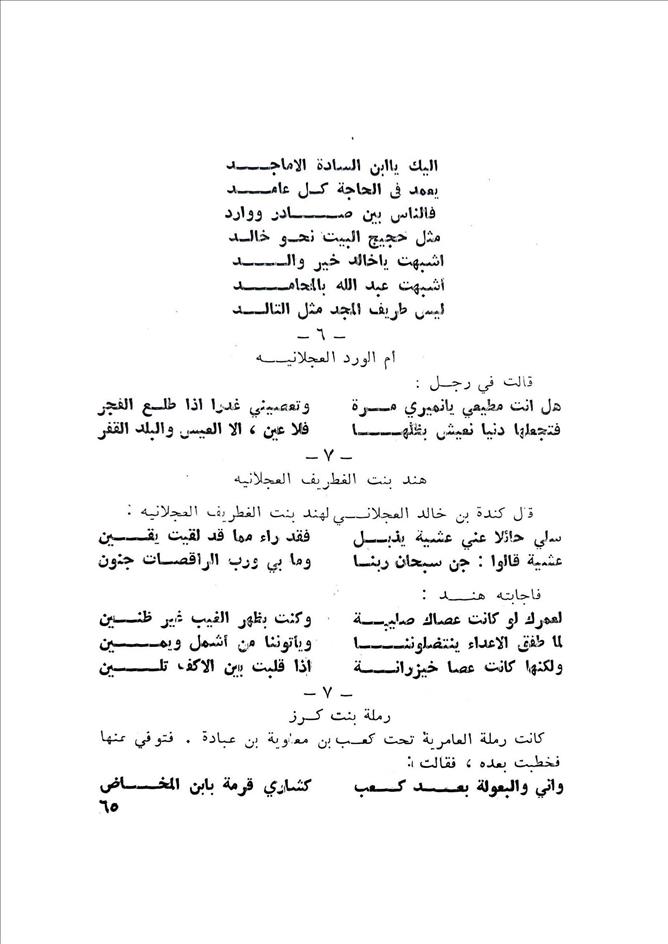 اليك ياابن السادة الاماجـــــد
يعمد في الحاجة كـل عامـــد
فالناس بين صـــــادر ووارد
مثل حجيج البيت نحـو خالـد
اشبهت ياخالد خير والـــــد
أشبهت عبد الله بالمحامـــــد
ليس طريف المجد مثل التالـد
– ٦ –
ام الورد العجلانيـــه
قالت في رجل :
هل انت مطيعي يانميري مـــرة وتعصيني غدرا اذا طلـع الفجر
فتجعلها دنيا نعيش بظلهـــــا فلا عين ، الا العيس والبلد القفر
– ٧ –
هند بنت الغطريف العجلانيه
قال كندة بن خالد العجلانـــي لهند بنت الغطريف العجلانيه :
سلي حائلا عني عشية يذبـــل فقد راء مما قد لقيت يقـــين
عشية قالوا : جن سبحان ربنـا وما بي ورب الراقصـات جنون
فاجابته هنـــد :
لعمرك لو كانت عصاك صليبـة وكنت بظهر الغيب غير ظنــين
لما طفق الاعداء ينتضلوننـــا ويأتوننا من أشمل ويمـــين
ولكنها كانت عصا خيزرانـــة اذا قلبت بين الاكف تلـــين
– ٧ –
رملة بنت كـرز
كانت رملة العامرية تحت كعـب بن معاوية بن عبادة . فتوفي عنها
فخطبت بعده ، فقالت :
واني والبعولة بعـــد كـــعب كشاري قرمة بابن المخـــاض
٦٥